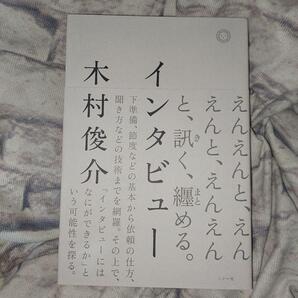 えんえんと、えん
えんと、えんえん
と、訊く、纏める。
き
まと
インタビュー
木村俊介
下準備、節度などの基本から依頼の仕方、
聞き方などの技術までを網羅。その上で、
「インタビューには
なにができるか」と
いう可能性を探る。